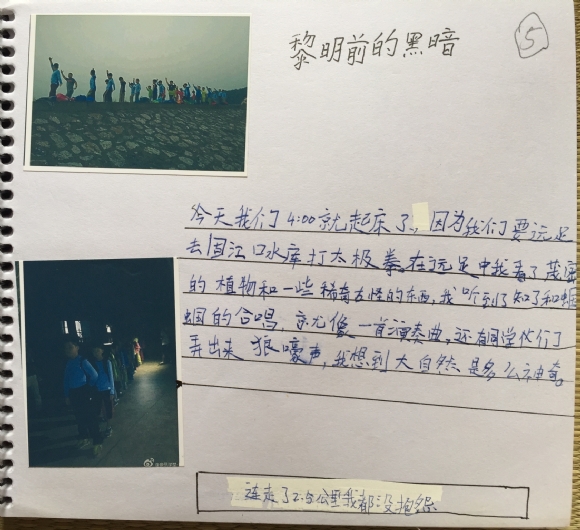 黎明前的黑暗
5
今天我们4:00就起床了，因为我们要远足
去固江口水库打太极拳。在远足中我看了茂密
的植物和一些稀奇古怪的东西，我听到了知了和蝈
蝈的合唱，就像一首演奏曲，还有同学们
弄出来 狼嚎声，我想到大自然是多么神奇。
连走了2.5公里我都没抱怨